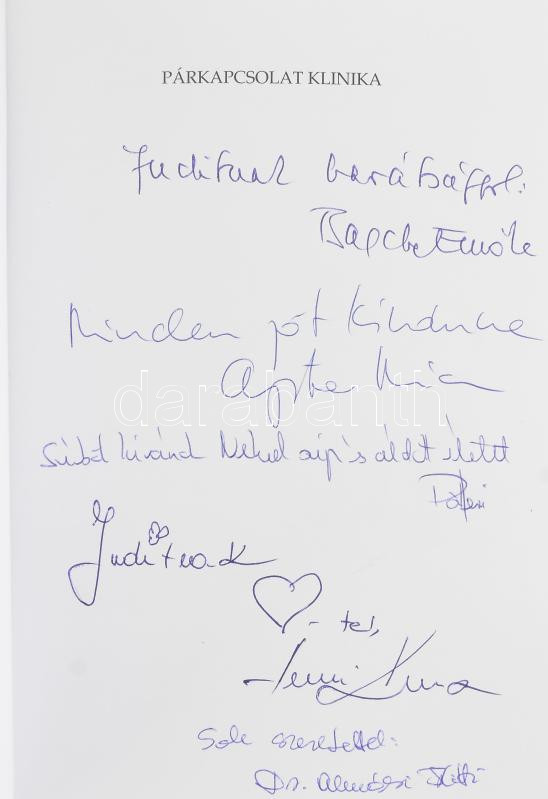 PÁRKAPCSOLAT KLINIKA
Juditnak barátsággal:
Bagdy Emőke
Minden jót kívánva
darabanth
Szívből kívánok Neked szép s áldott életet
Juditnak
- tel,
Sok szeretettel:
Dr. Almási Kitti